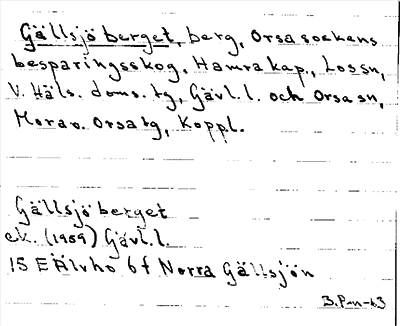 Gällsjöberget, berg, Orsa sockens
besparingsskog, Hamra kap., Los sn,
V. Häls. doms. tg, Gävl. l. och Orsa sn,
Mora o. Orsa tg, Koppl.
Gällsjöberget
ek. (1959) Gävl. l.
15 E Älvho 6f Norra Gällsjön